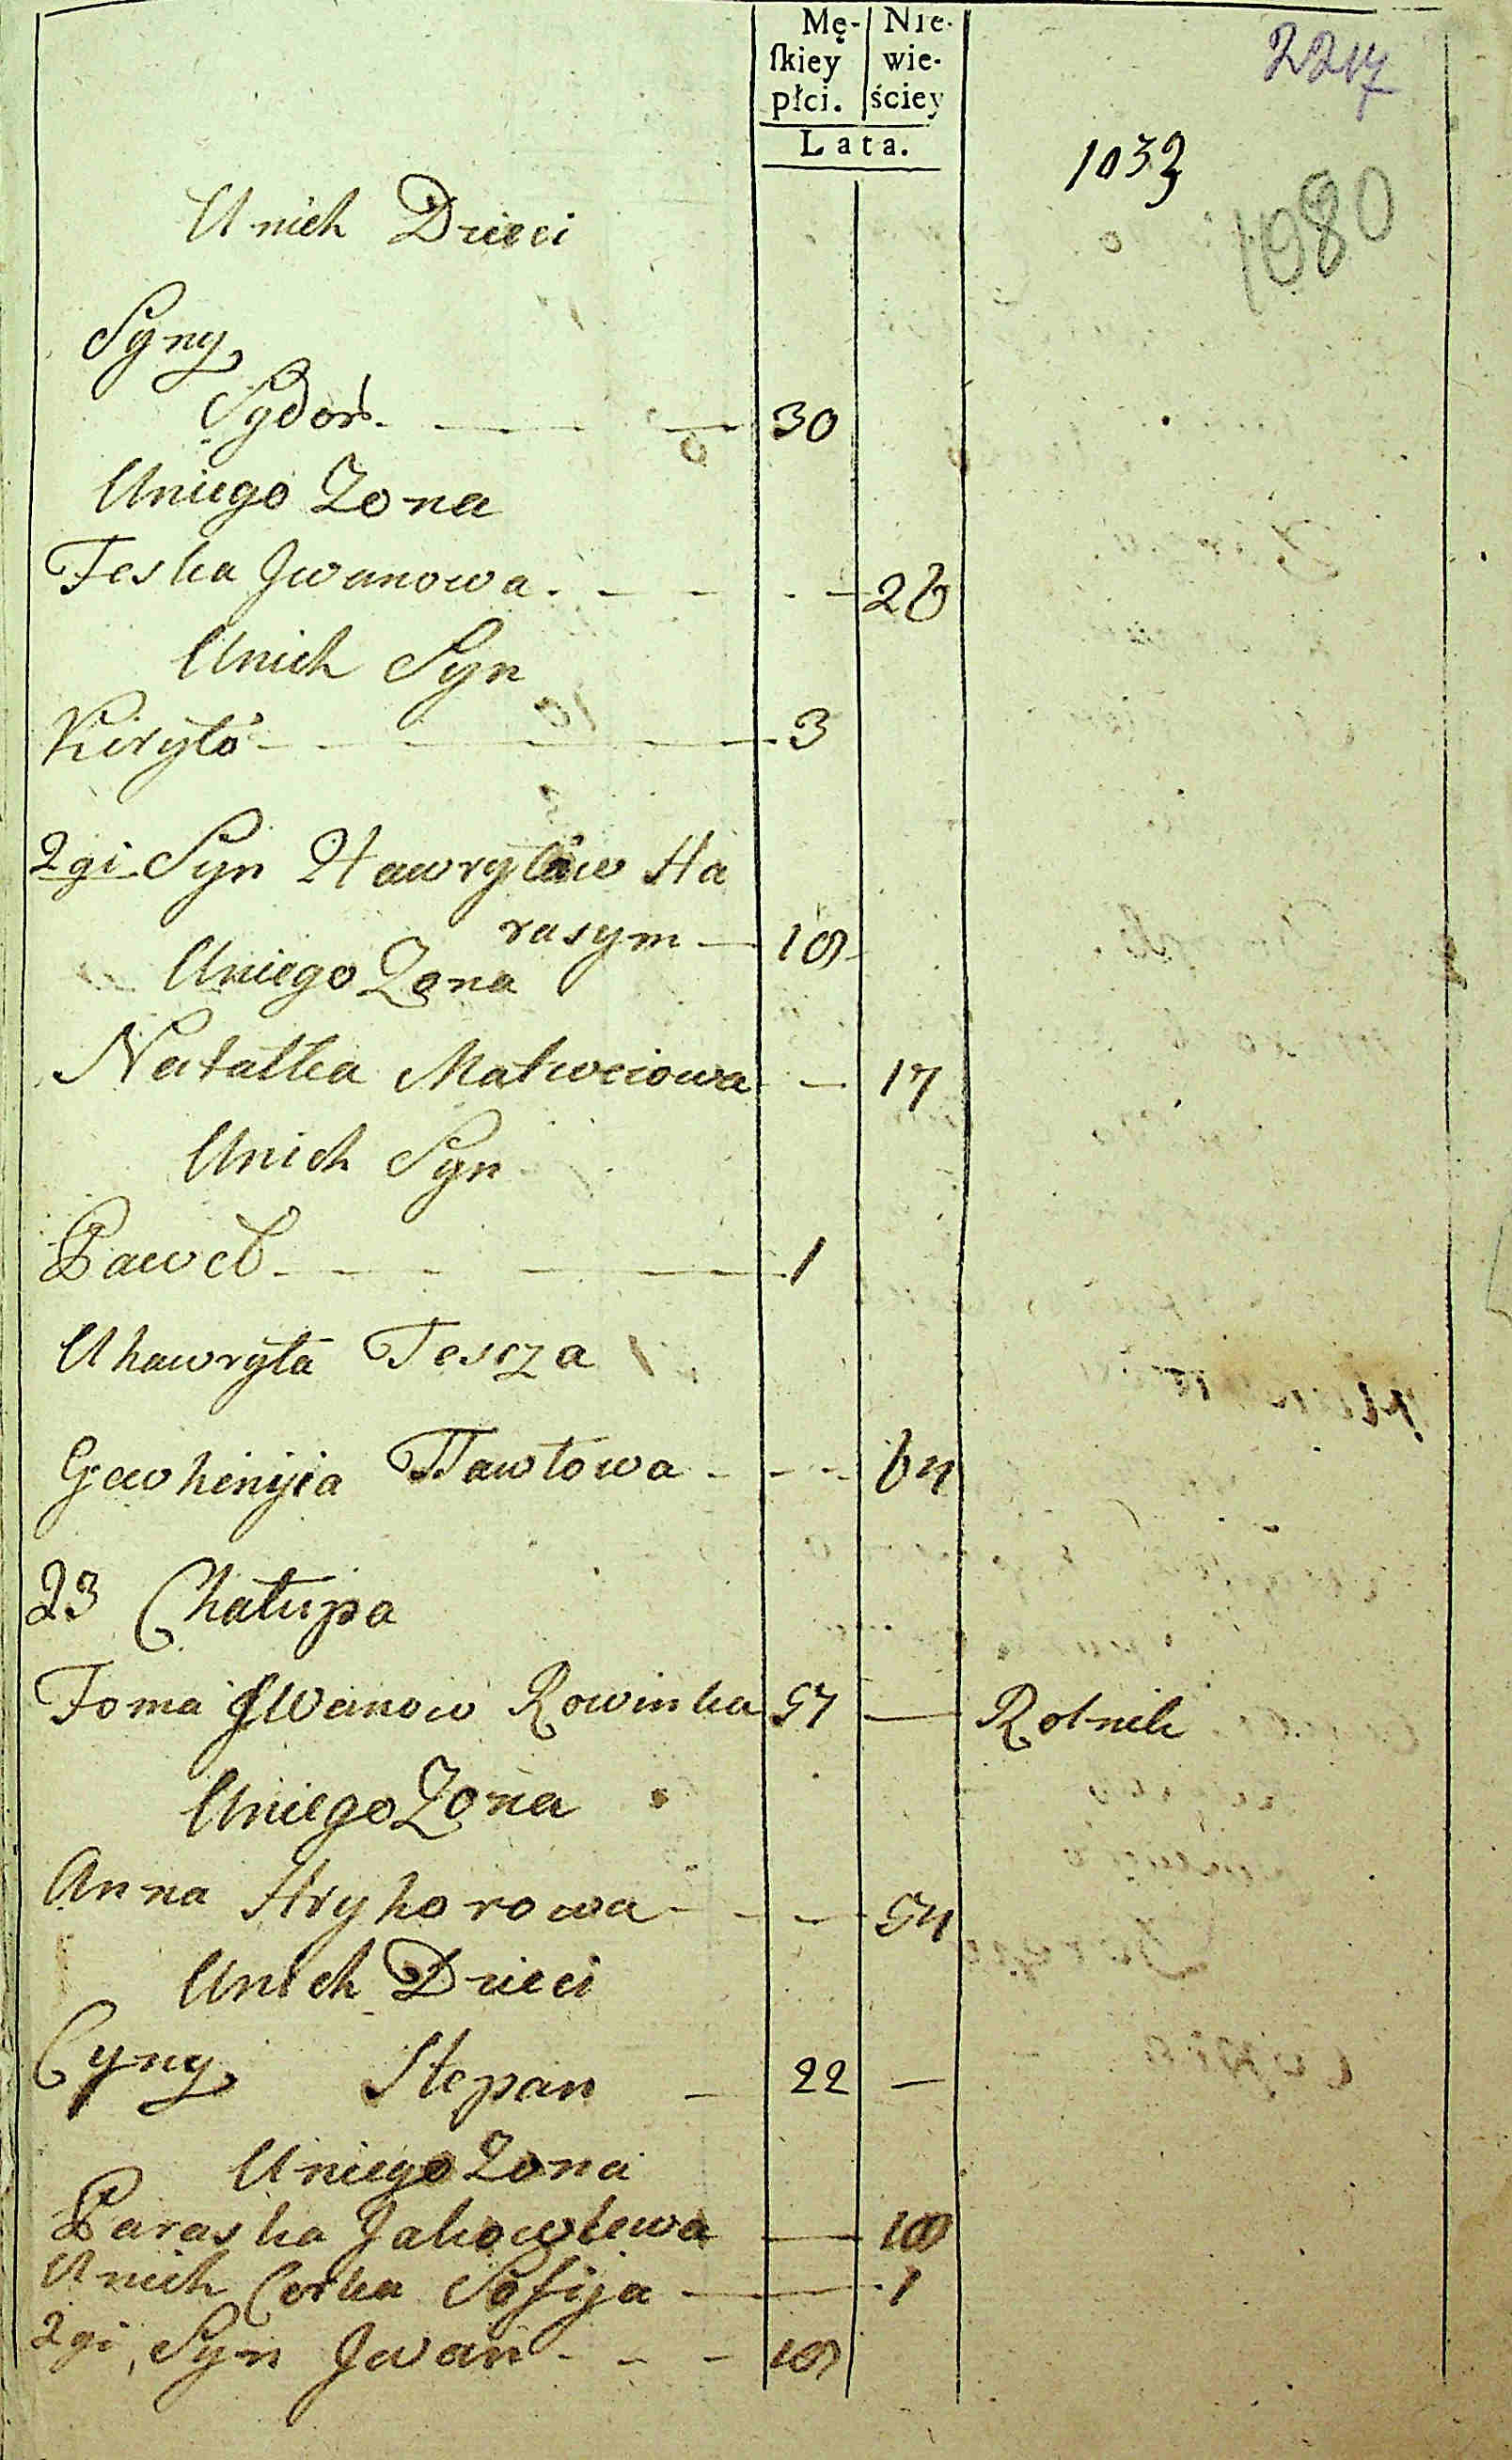 Mę- Nie-
ſkiey wie-
płci. ściey
Lata.
2217
1033
1080
U nich Dzieci
Syny
Sydor 30
Uniego Zona
Feska Jwanowa 26
Unich Syn
Kiryło 3
2gi Syn Hawryłow Ha
rasym 18
Uniego Zona
Natałka Matweiowa 17
Unich Syn
Paweł 1
Uhawryła Tescza
Gewhenyia Pawłowa 64
23 Chałupa
Foma Jwanow Rowinka 54 — Rolnik
Uniego Zona
Anna Hryhorowa 54
Unich Dzieci
Cyny Stepan 22 —
Uniego Zona
Paraska Jakowlewa 18
Unich Corka Sofija 1
2gi Syn Jwan 18